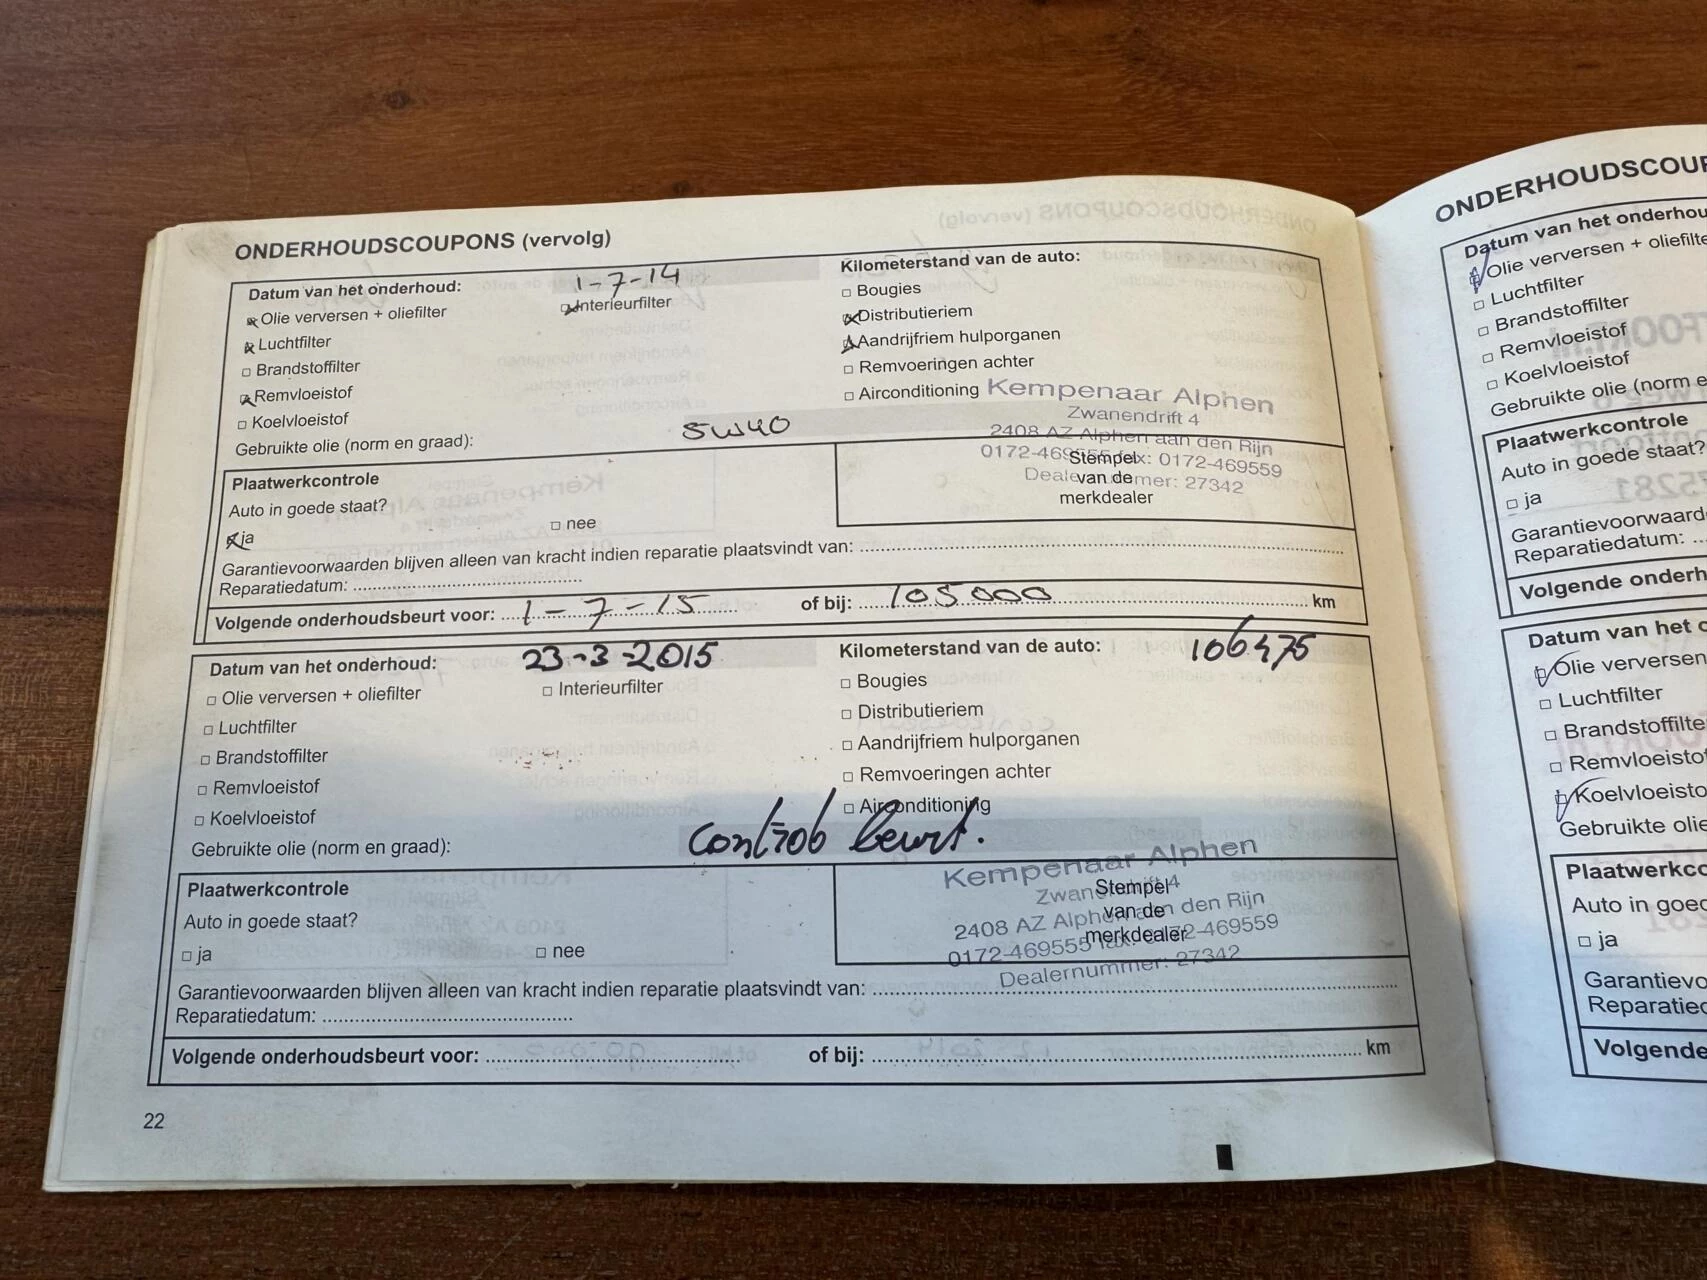 ONDERHOUDSCOUPONS (vervolg)
Datum van het onderhoud: 1-7-14 Kilometerstand van de auto:
Olie verversen + oliefilter Interieurfilter Bougies
Luchtfilter Distributieriem
Brandstoffilter Aandrijfriem hulporganen
Remvloeistof Remvoeringen achter
Koelvloeistof Airconditioning
Gebruikte olie (norm en graad): 5W40
Kempenaar Alphen
Zwanendrift 4
2408 AZ Alphen aan den Rijn
0172-469555 fax: 0172-469559
Dealernummer: 27342
Stempel
van de
merkdealer
Plaatwerkcontrole
Auto in goede staat?
ja nee
Garantievoorwaarden blijven alleen van kracht indien reparatie plaatsvindt van:
Reparatiedatum:
Volgende onderhoudsbeurt voor: 1-7-15 of bij: 105000 km
Datum van het onderhoud: 23-3-2015 Kilometerstand van de auto: 106475
Olie verversen + oliefilter Interieurfilter Bougies
Luchtfilter Distributieriem
Brandstoffilter Aandrijfriem hulporganen
Remvloeistof Remvoeringen achter
Koelvloeistof Airconditioning
Gebruikte olie (norm en graad): beurt.
Kempenaar Alphen
Zwanendrift 4
2408 AZ Alphen aan den Rijn
0172-469555 fax: 0172-469559
Dealernummer: 27342
Stempel
van de
merkdealer
Plaatwerkcontrole
Auto in goede staat?
ja nee
Garantievoorwaarden blijven alleen van kracht indien reparatie plaatsvindt van:
Reparatiedatum:
Volgende onderhoudsbeurt voor: of bij: km
22
ONDERHOUDSCOUP
Datum van het onderhou
Olie verversen + oliefilte
Luchtfilter
Brandstoffilter
Remvloeistof
Koelvloeistof
Gebruikte olie (norm e
Plaatwerkcontrole
Auto in goede staat?
ja
Garantievoorwaard
Reparatiedatum:
Volgende onderh
Datum van het o
Olie verversen
Luchtfilter
Brandstoffilte
Remvloeisto
Koelvloeisto
Gebruikte olie
Plaatwerkco
Auto in goed
ja
Garantievo
Reparatied
Volgende